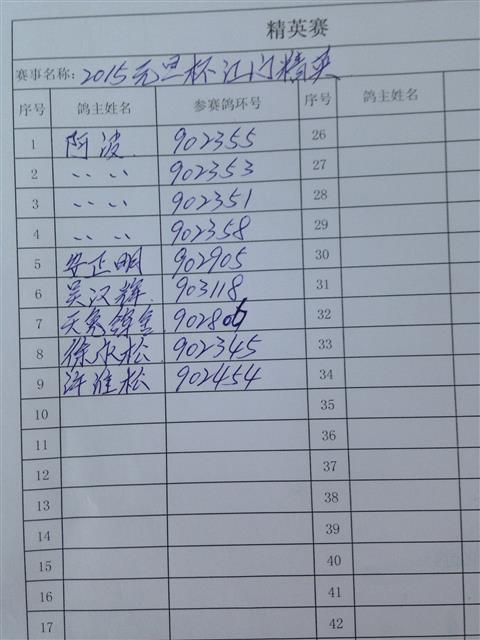 精英赛
赛事名称: 2015元旦杯江门精英
序号 鸽主姓名 参赛鸽环号 序号 鸽主姓名
1 阿波 902355 26
2 〃 〃 902353 27
3 〃 〃 902351 28
4 〃 〃 902358 29
5 安正明 902905 30
6 吴汉辉 903118 31
7 902806 32
8 徐永松 902345 33
9 许淮松 902454 34
10 35
11 36
12 37
13 38
14 39
15 40
16 41
17 42